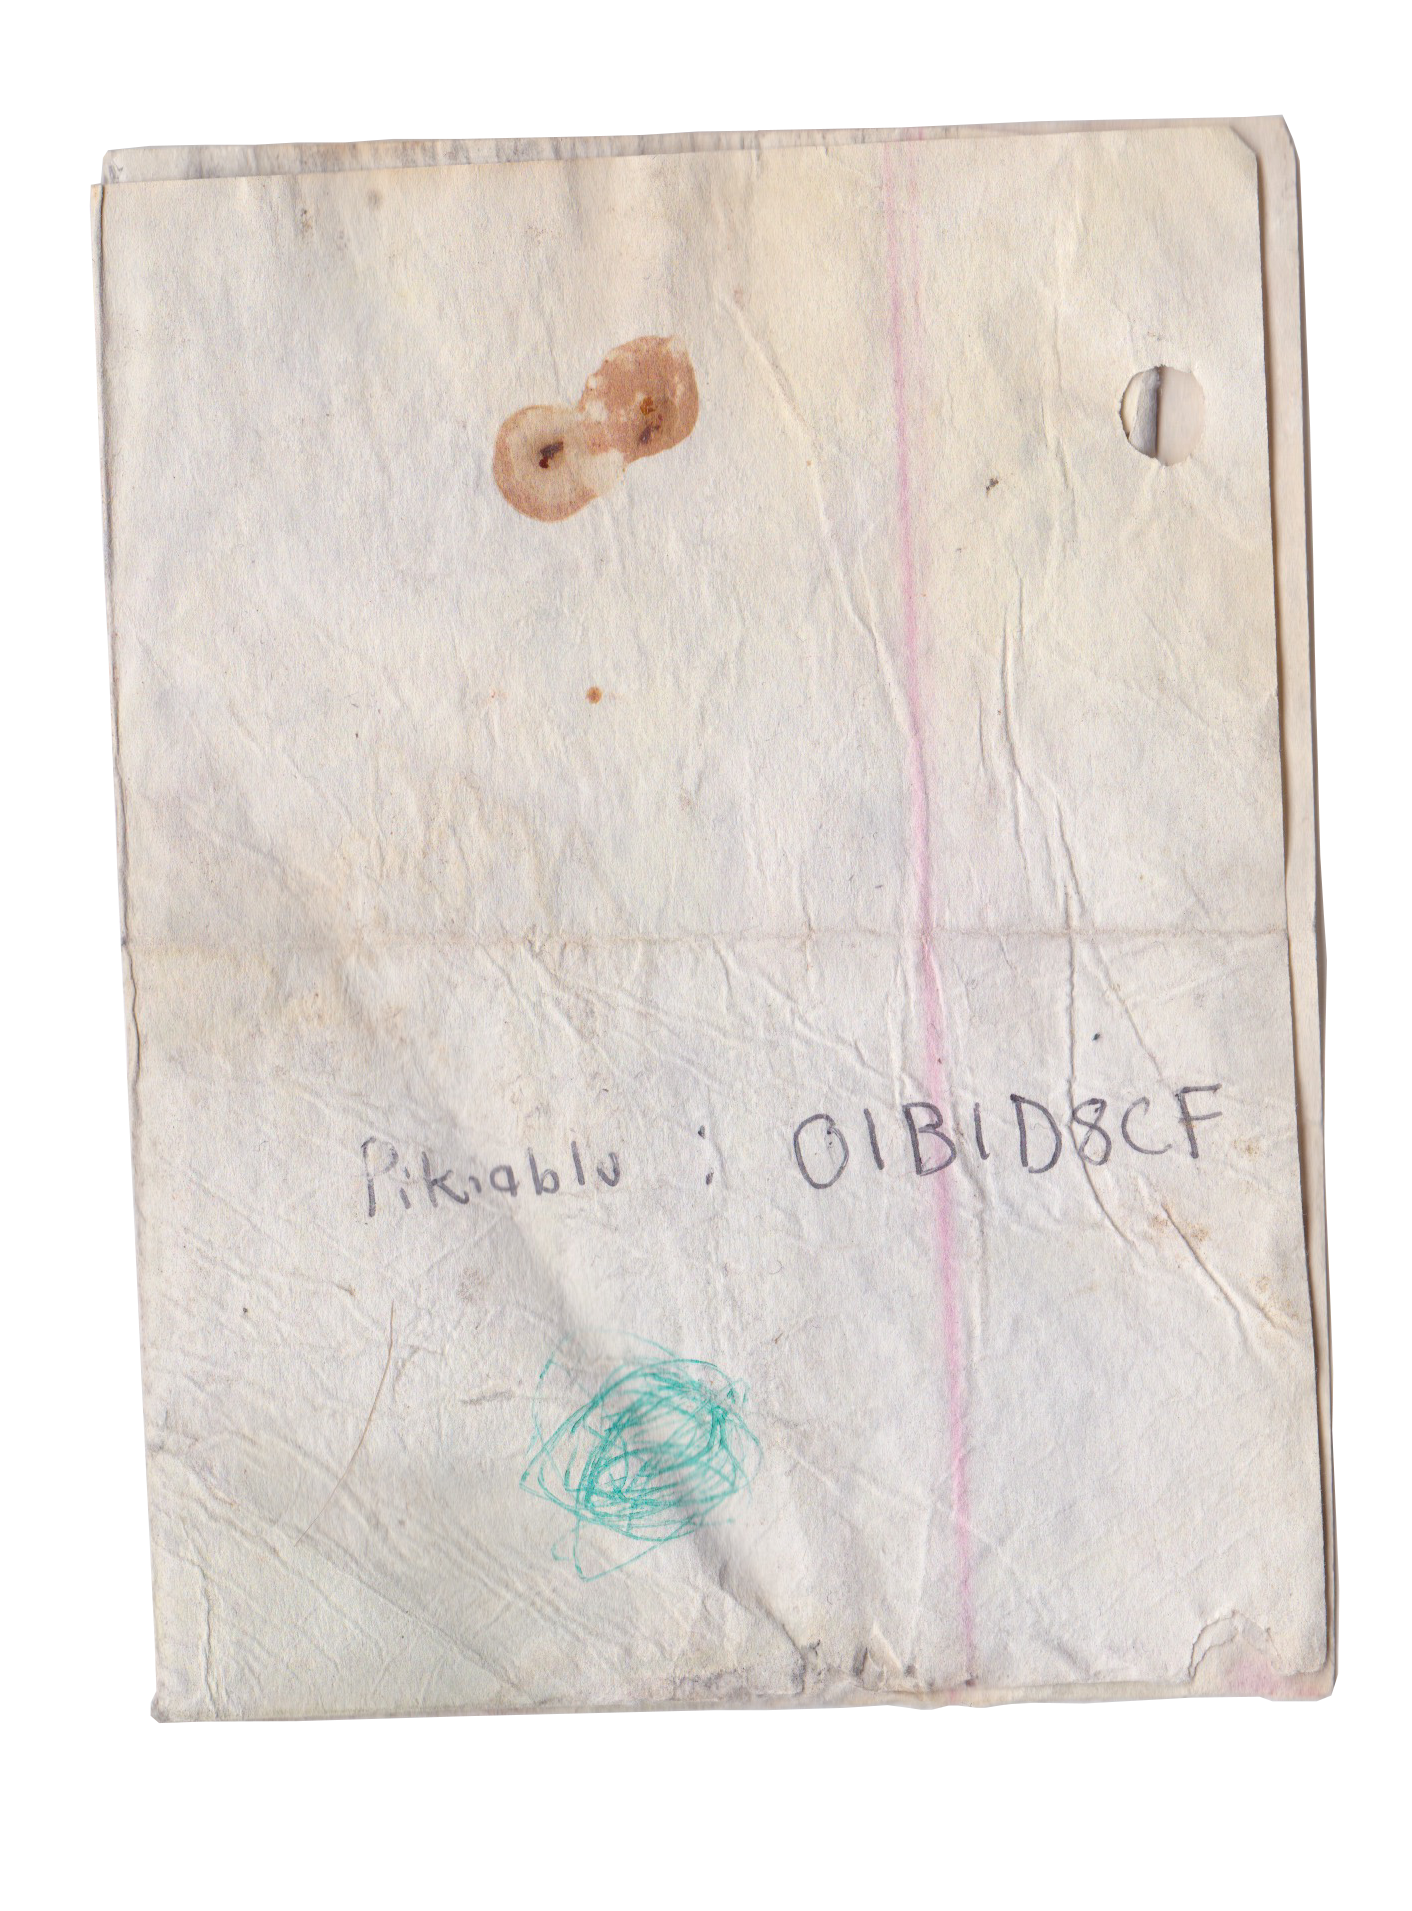 Pikiablu : 01B1D8CF